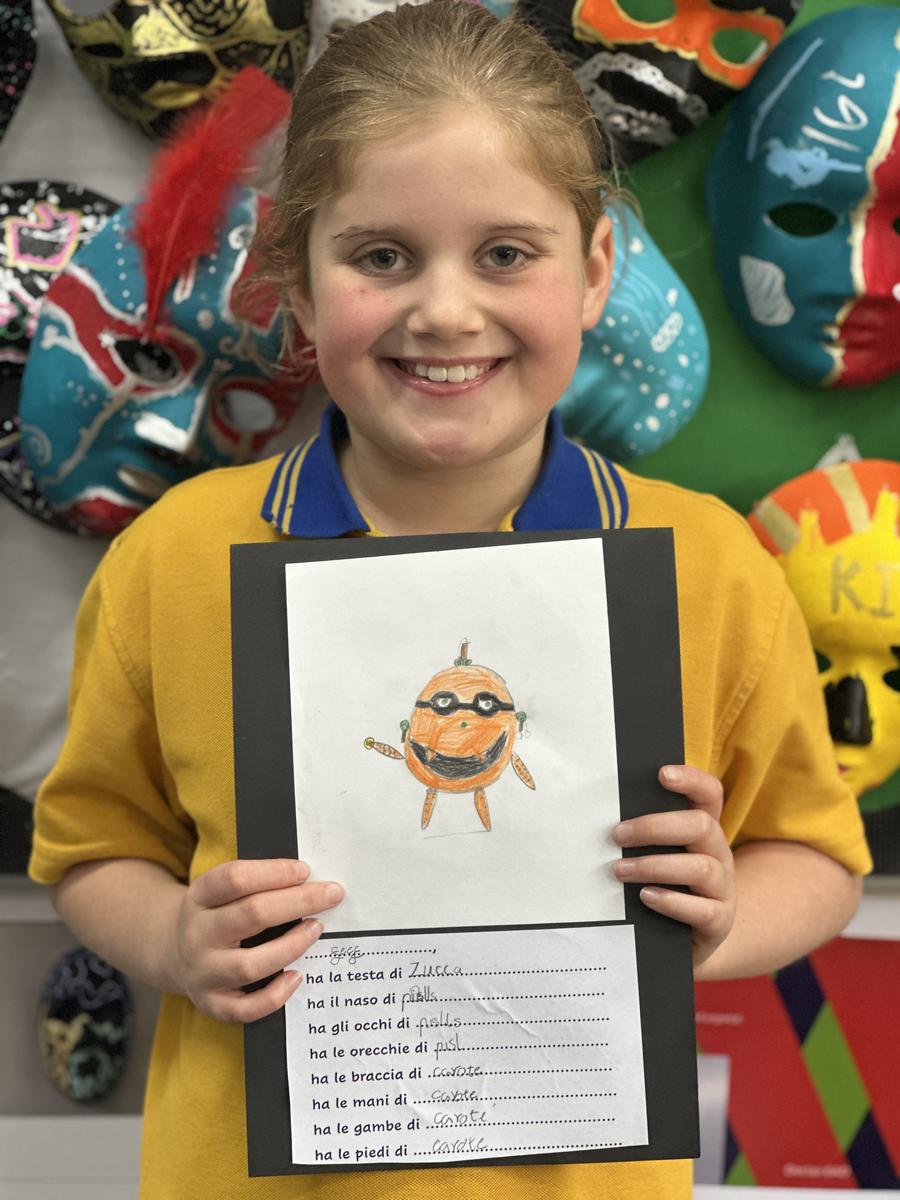 KI
ha la testa di Zucca
ha il naso di
ha gli occhi di
ha le orecchie di
ha le braccia di carote
ha le mani di carote
ha le gambe di carote
ha le piedi di carote